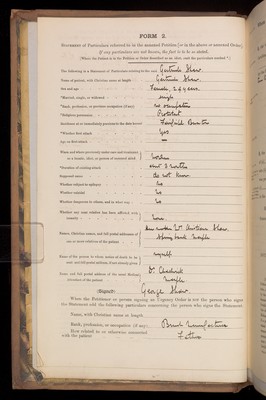 FORM 2.
STATEMENT of Particulars referred to in the annexed Petition [or in the above or annexed Order].
If any particulars are not known, the fact is to be so stated.
[Where the Patient is in the Petition or Order described as an idiot, omit the particulars marked *.]
The following is a Statement of Particulars relating to the said Gertrude Shaw.
Name of patient, with Christian name at length Gertrude Shaw.
Sex and age Female, 24 years.
*Married, single, or widowed single
*Rank, profession, or previous occupation (if any) no occupation
*Religious persuasion Protestant
Residence at or immediately previous to the date hereof
*Whether first attack Yes
Age on first attack —
When and where previously under care and treatment
as a lunatic, idiot, or person of unsound mind
*Duration of existing attack
Supposed cause do not know
Whether subject to epilepsy No
Whether suicidal No
Whether dangerous to others, and in what way No
Whether any near relative has been afflicted with
insanity None
Names, Christian names, and full postal addresses of
one or more relatives of the patient
Name of the person to whom notice of death to be
sent, and full postal address, if not already given myself
Name and full postal address of the usual Medical
Attendant of the patient Dr. Chadwick
(Signed) George Shaw.
When the Petitioner or person signing an Urgency Order is not the person who signs
the Statement add the following particulars concerning the person who signs the Statement.
Name, with Christian name at length
Rank, profession, or occupation (if any) Brush Manufacturer
How related to or otherwise connected
with the patient Father